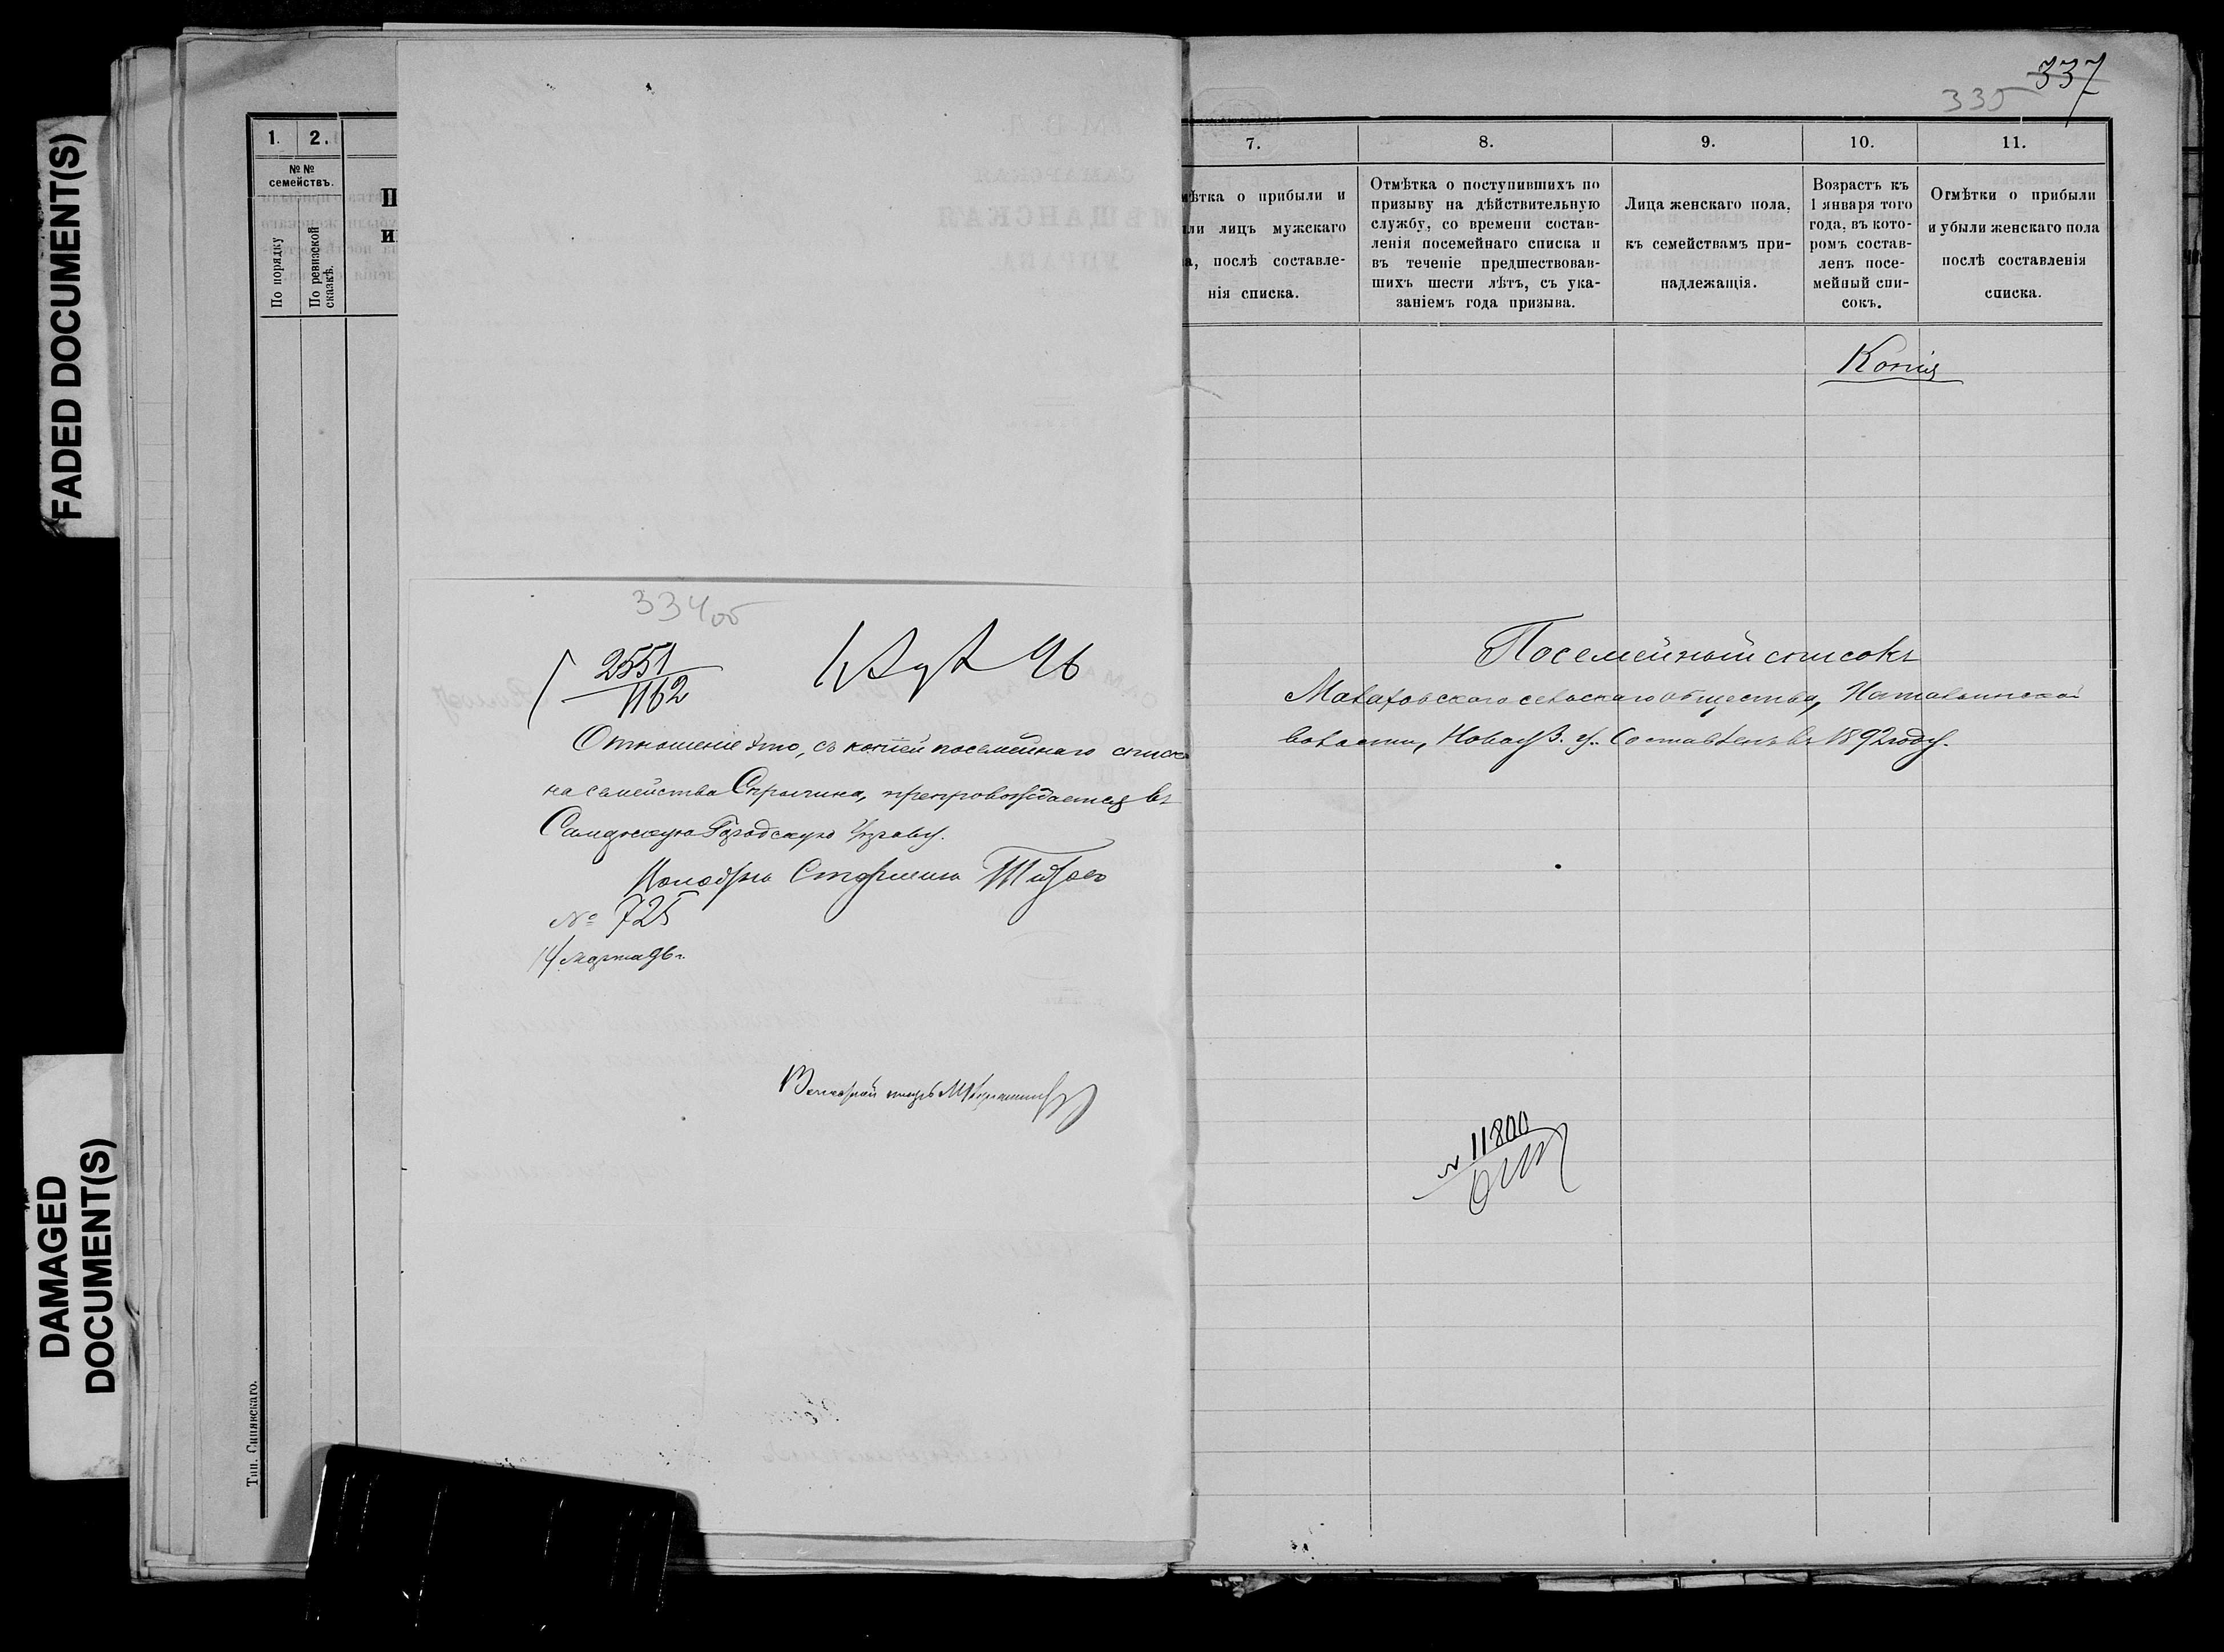 FADED DOCUMENT(S)
DAMAGED
DOCUMENT(S)
1. 2.
№ №
семействъ.
По порядку
По ревизской
сказкѣ.
Тип. Синявскаго.
334об
2551
1162
96
Отношеніе это, съ копіей посемейнаго списка
на семейства Спрыгина, препровождается въ
Самарскую Городскую Управу.
Волостн Старшина
№ 725
14 Марта 96 г.
Волостной писарь
337
335
7. 8. 9. 10. 11.
мѣтка о прибыли и
ли лицъ мужскаго
а, послѣ составле-
нія списка.
Отмѣтка о поступившихъ по
призыву на дѣйствительную
службу, со времени состав-
ленія посемейнаго списка и
въ теченіе предшествовав-
шихъ шести лѣтъ, съ ука-
заніемъ года призыва.
Лица женскаго пола,
къ семействамъ при-
надлежащія.
Возрастъ къ
1 января того
года, въ кото-
ромъ состав-
ленъ посе-
мейный спи-
сокъ.
Отмѣтки о прибыли
и убыли женскаго пола
послѣ составленія
списка.
Копія
Посемейный списокъ
сельскаго общества, Натальинской
волости, Новоуз. у. Составленъ въ 1892 году.
№ 11800